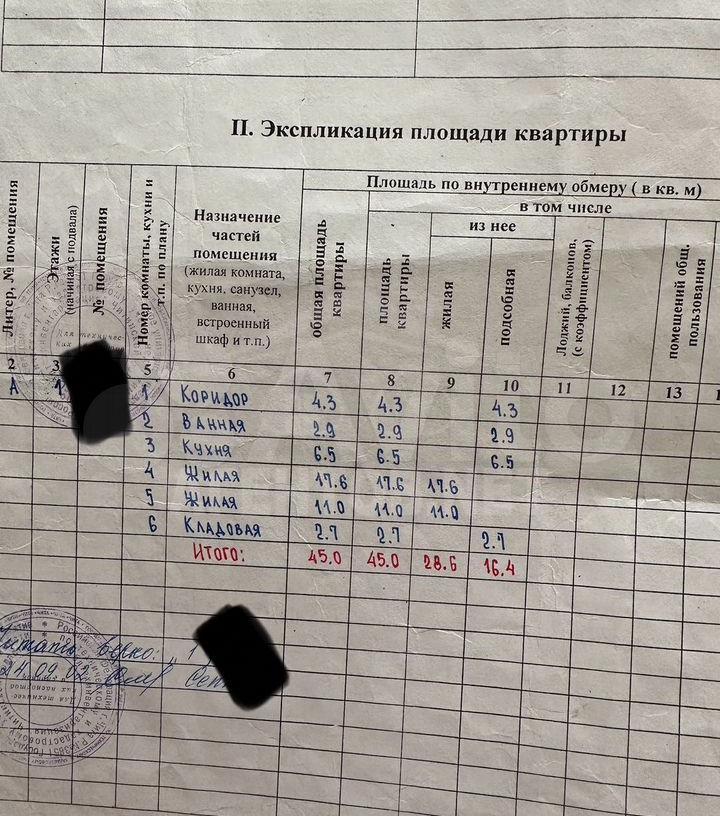 II. Экспликация площади квартиры
Литер, № помещения
Этажи (начиная с подвала)
№ помещения
Номер комнаты, кухни и т.п. по плану
Назначение частей помещения (жилая комната, кухня, санузел, ванная, встроенный шкаф и т.п.)
Площадь по внутреннему обмеру ( в кв. м)
общая площадь квартиры
в том числе
площадь квартиры
из нее
жилая
подсобная
Лоджий, балконов, (с коэффициентом)
помещений общ. пользования
2 3 5 6 7 8 9 10 11 12 13
А 1 1 Коридор 4.3 4.3 4.3
2 Ванная 2.9 2.9 2.9
3 Кухня 6.5 6.5 6.5
4 Жилая 17.6 17.6 17.6
5 Жилая 11.0 11.0 11.0
6 Кладовая 2.7 2.7 2.7
Итого: 45.0 45.0 28.6 16.4
24.09.02